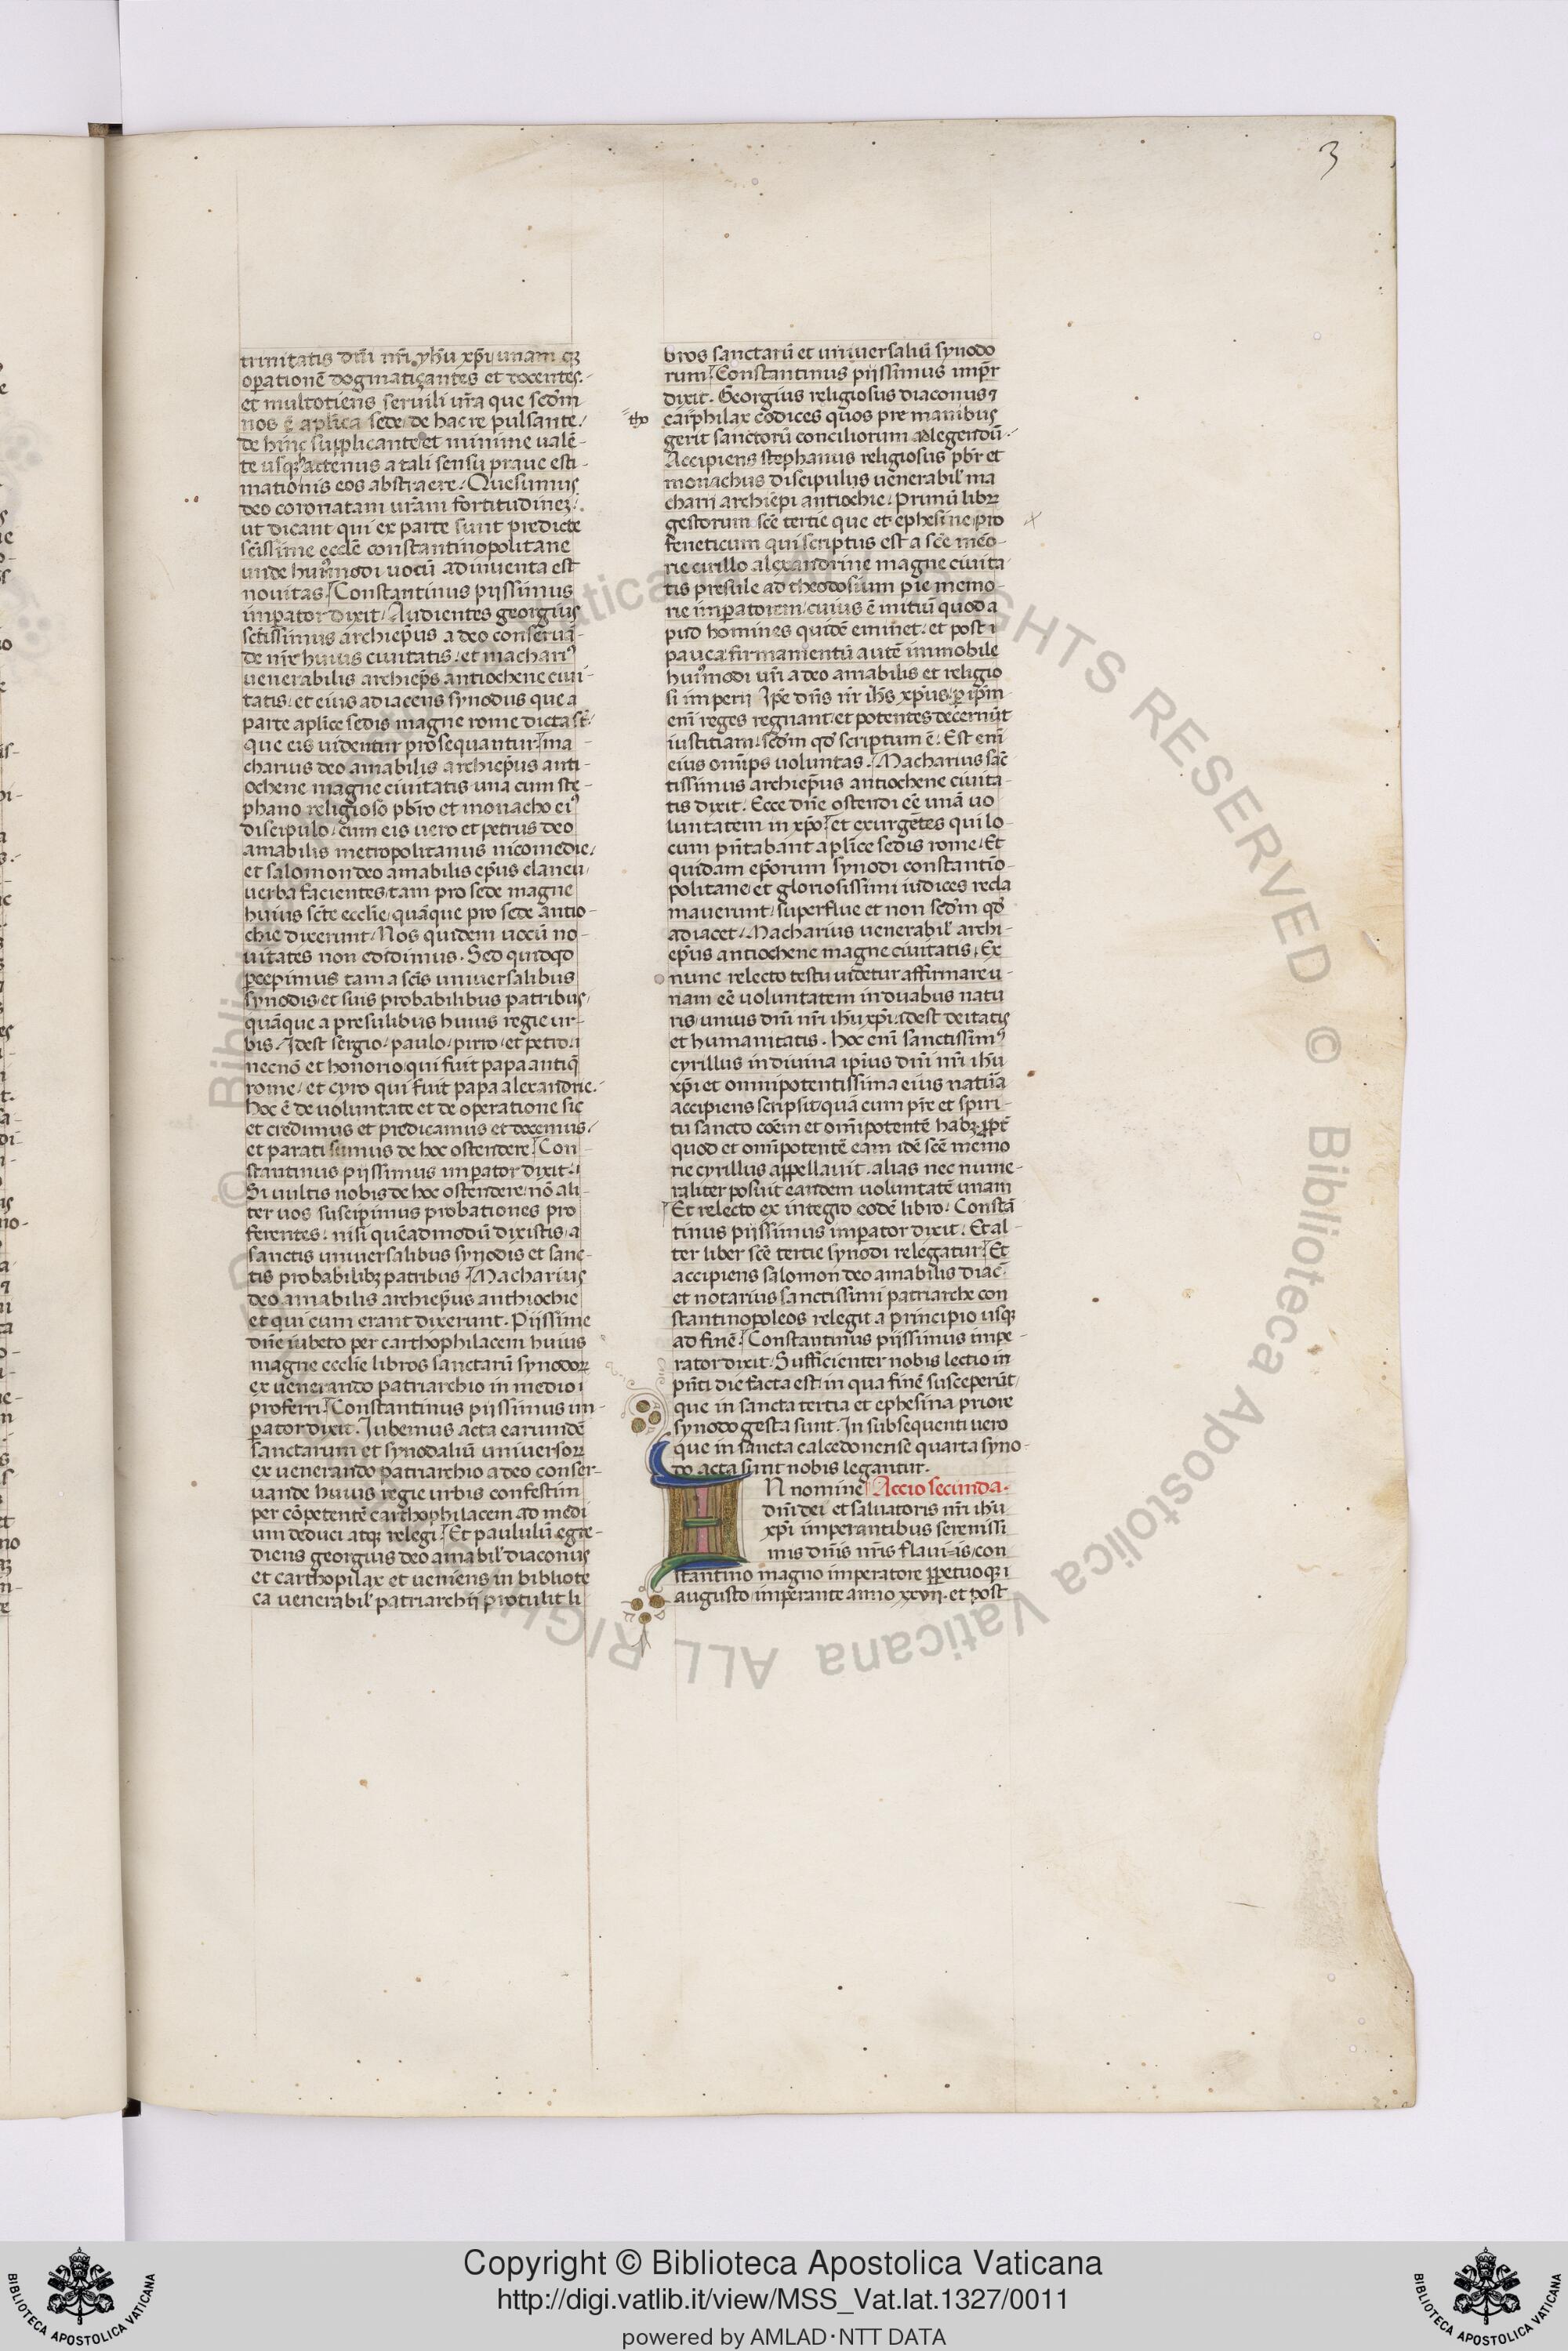 3
trinitatis dñi nr̃i yhũ xp̃i unam qꝫ
oꝑationẽ dogmatiçantes et docentes.
et multotiens seruili ur̃a que sedm̃
nos ẽ aplica sede de hac re pulsante.
de hinc supplicante et minime ualẽ-
te usqꝫ actenus a tali sensu praue esti-
mationis eos abstraere. Quesumus
deo coronatam ur̃am fortitudinez.
ut dicant qui ex parte sunt predicte
sc̃issime eccłe constantinopolitane
unde huiꝰmodi uocũ adinuenta est
nouitas. Constantinus pijssimus
imꝑator dixit. Audientes georgius
sc̃tissimus archiep̃us a deo conseruã-
de nr̃e huius ciuitatis. et machariꝰ
uenerabilis archiep̃s antiochene ciui-
tatis. et eius adiacens synodus que a
parte aplice sedis magne rome dicta st̃.
que eis uidentur prosequantur. ma-
charius deo amabilis archiep̃us anti-
ochene magne ciuitatis una cum ste-
phano religioso pbr̃o et monacho eiꝰ
discipulo. cum eis uero et petrus deo
amabilis metropolitanus nicomedie.
et salomon deo amabilis ep̃us claneu
uerba facientes tam pro sede magne
huius sc̃te ecclie quãque pro sede antio-
chie dixerunt. Nos quidem uocũ no-
uitates non edidimus. Sed quidqd
ꝑcepimus tam a sc̃is uniuersalibus
synodis et suis probabilibus patribus,
quãque a presulibus huius regie ur-
bis. Idest sergio. paulo. pirro. et petro.
necnõ et honorio qui fuit papa antiq̃
rome. et cyro qui fuit papa alexandrie.
hoc ẽ de uoluntate et de operatione sic
et credimus et predicamus et docemus.
et parati sumus de hoc ostendere. Con-
stantinus pijssimus imperator dixit.
Si uultis nobis de hoc ostendere nõ ali-
ter uos suscipimus probationes pro
ferentes. nisi quẽadmodũ dixistis. a
sanctis uniuersalibus synodis et sanc-
tis probabilibꝫ patribus. Macharius
deo amabilis archiep̃us anthiochie
et qui cum erant dixerunt. Piissime
dñe iubeto per carthophilacem huius
magne ecclie libros sanctarũ synodoꝝ
ex uenerando patriarchio in medio
proferri. Constantinus pijssimus im-
ꝑator dixit. Iubemus acta earundẽ
sanctarum et synodaliũ uniuersoꝝ
ex uenerando patriarchio a deo conser-
uande huius regie urbis confestim
per cõpetentẽ carthophilacem ad medi
um deduci atqꝫ relegi. Et paululũ egre-
diens georgius deo amabił diaconus
et carthopilax et ueniens in bibliote
ca uenerabił patriarchij protulit li
bros sanctarũ et uniuersaliũ synodo
rum. Constantinus pijssimus imp̃r
dixit. Georgius religiosus diaconus ⁊
tho
carphilax codices quos pre manibus
gerit sanctorũ conciliorum adlegendũ.
Accipiens stephanus religiosus pbr̃ et
monachus discipulus uenerabił ma
charii archiep̃i antiochie. Primũ librꝝ
gestorum sc̃e tertie que et ephesine pro
feneticum qui scriptus est a sc̃e mẽo-
rie cirillo alexandrine magne ciuita
tis presule ad theodosium pie memo-
rie imꝑatorem cuius ẽ initiũ quod a
pud homines quidẽ eminet. et post
pauca firmamentũ autẽ immobile
huiꝰmodi ur̃i a deo amabilis et religio
si imperij Ip̃e dñs nr̃ ih̃s xp̃us ꝑ ip̃m
eni reges regnant. et potentes decernũt
iustitiam. sedm̃ qd̃ scriptum ẽ. Est enĩ
eius omñps uoluntas. Macharius sãc
tissimus archiep̃us antiochene ciuita-
tis dixit. Ecce dñe ostendi eẽ unã uo
luntatem in xp̃o. et exurgẽtes qui lo-
cum pñtabant aplice sedis rome. Et
quidam ep̃orum synodi constantio-
politane et gloriosissimi iudices recla
mauerunt. superflue et non sedm̃ qd̃
adiacet. Macharius uenerabił archi-
ep̃us antiochene magne ciuitatis. Ex
nunc relecto testu uidetur affirmare u-
nam eẽ uoluntatem in duabus natu
ris unius dñi nr̃i ih̃u xp̃i. idest deitatis
et humanitatis. hoc enĩ sanctissimꝰ
cyrillus in diuina ip̃ius dñi nr̃i ih̃u
xp̃i et omnipotentissima eius natur̃a
accipiens scripsit quã cum pr̃e et spiri-
tu sancto cõem et omĩpotentẽ habꝫ ꝓpt̃
quod et omĩpotentẽ eam idẽ sc̃e memo
rie cyrillus appellauit. alias nec nume-
raliter posuit eandem uoluntatẽ unam
Et relecto ex integro eodẽ libro. Constã
tinus pijssimus imꝑator dixit. Et al-
ter liber sc̃e tertie synodi relegatur. Et
accipiens salomon deo amabilis diac̃
et notarius sanctissimi patriarche con
stantinopoleos relegit a principio usqꝫ
ad finẽ. Constantinus pijssimus impe-
rator dixit. Sufficienter nobis lectio in
pñti die facta est. in qua finẽ susceperũt
que in sancta tertia et ephesina priore
synodo gesta sunt. In subsequenti uero
que in sancta calcedonense quarta syno-
do acta sunt nobis legantur.
IN nominẽ Accio secunda.
dñi dei et saluatoris nr̃i ih̃u
xp̃i imperantibus serenissi
mis dñis nr̃is flauiis con
stantino magno imperatore ꝑpetuoqꝫ
augusto imperante anno xxvij. et post
Copyright © Biblioteca Apostolica Vaticana
http://digi.vatlib.it/view/MSS_Vat.lat.1327/0011
powered by AMLAD·NTT DATA
BIBLIOTECA APOSTOLICA VATICANA
BIBLIOTECA APOSTOLICA VATICANA